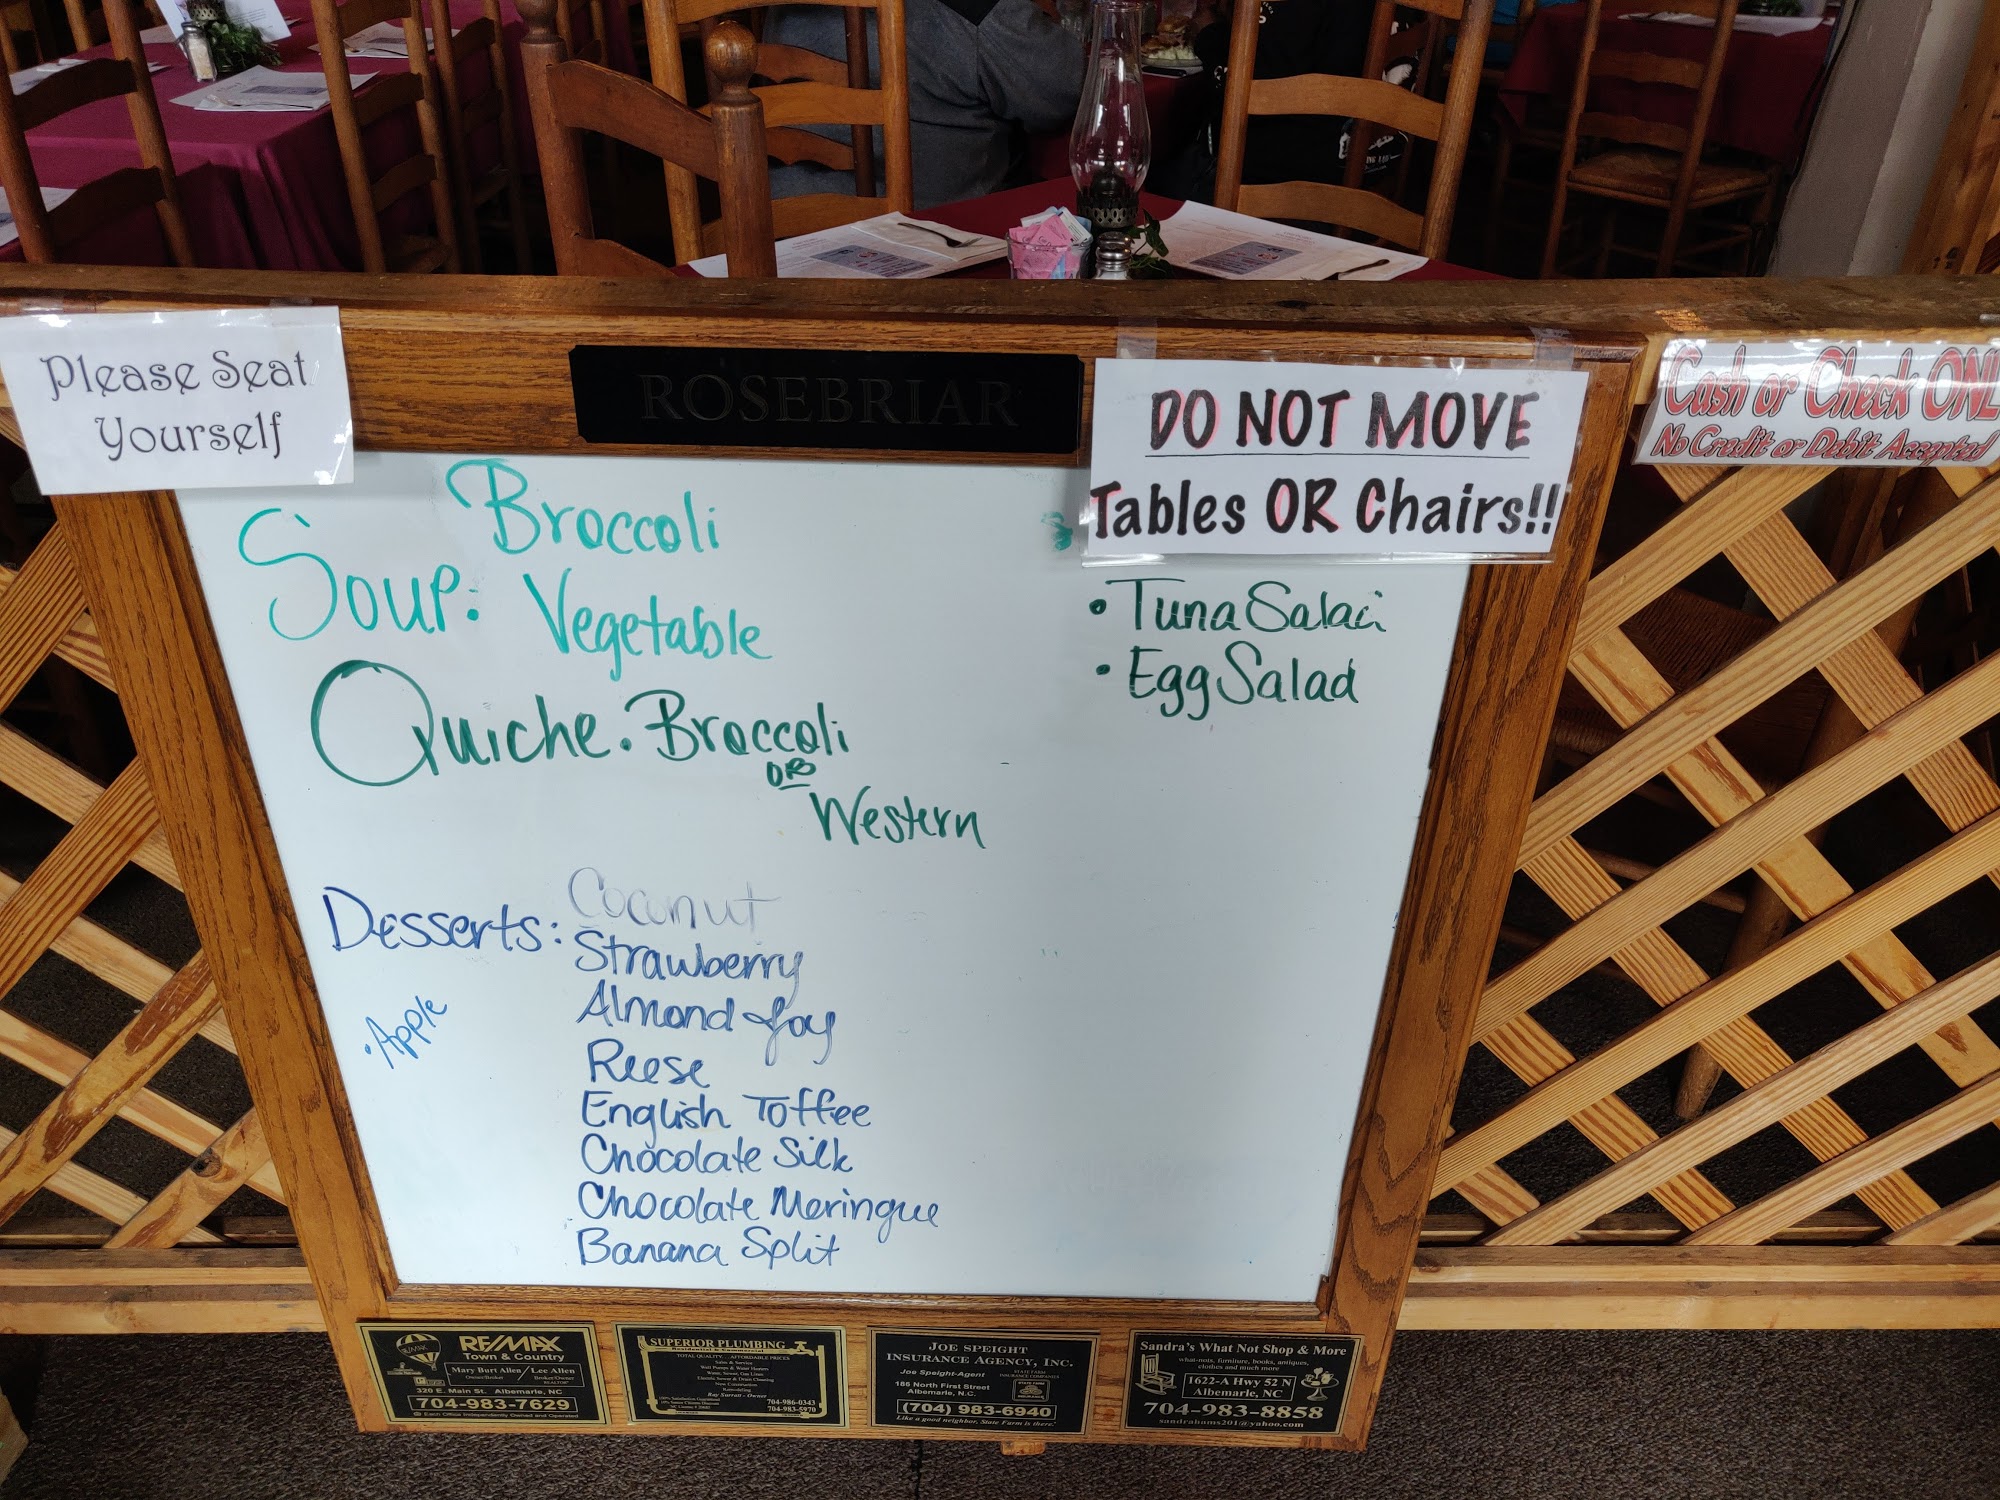 Please Seat
Yourself
ROSEBRIAR
DO NOT MOVE
Tables OR Chairs!!
Cash or Check ONL
No Credit or Debit Accepted
Broccoli
Soup: Vegetable
Quiche. Broccoli
OR
Western
• Tuna Salad
• Egg Salad
Desserts: Coconut
Strawberry
Almond Joy
Reese
English Toffee
Chocolate Silk
Chocolate Meringue
Banana Split
• Apple
RE/MAX
Town & Country
Mary Burt Allen / Lee Allen
Owner/Broker Broker/Owner
REALTOR®
320 E. Main St. Albemarle, NC
704-983-7629
Each Office Independently Owned and Operated
SUPERIOR PLUMBING
Residential & Commercial
TOTAL QUALITY... AFFORDABLE PRICES
Sales & Service
Well Pumps & Water Heaters
Water, Sewer, Gas Lines
Electric Sewer & Drain Cleaning
New Construction
Remodeling
Ray Surratt - Owner
704-986-0343
704-983-5970
JOE SPEIGHT
INSURANCE AGENCY, INC.
Joe Speight-Agent
186 North First Street
Albemarle, N.C.
STATE FARM
INSURANCE COMPANIES
(704) 983-6940
Like a good neighbor, State Farm is there.
Sandra's What Not Shop & More
what-nots, furniture, books, antiques,
clothes and much more
1622-A Hwy 52 N
Albemarle, NC
704-983-8858
sandrahams201@yahoo.com